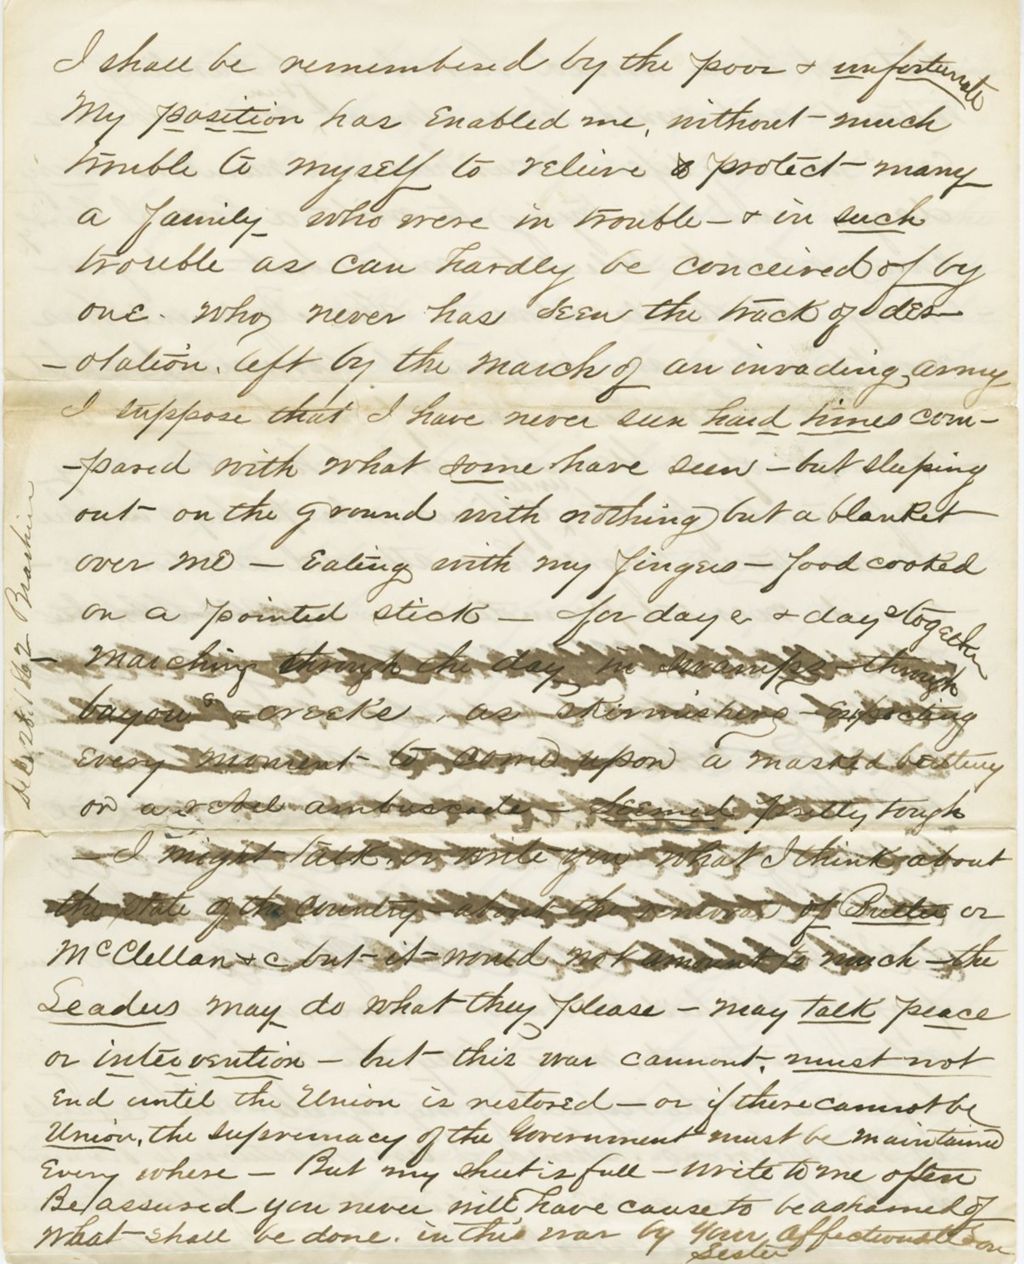 I shall be remembered by the poor & unfortunate
My position has enabled me, without much
trouble to myself to relieve & protect many
a family who were in trouble - & in such
trouble as can hardly be conceived of by
one. who never has seen the track of des-
-olation, left by the march of an invading army
I suppose that I have never seen hard times com-
-pared with what some have seen - but sleeping
out on the ground with nothing but a blanket
over me - Eating with my fingers - food cooked
on a pointed stick - for days & days together
- Marching through the day in swamps - through
bayous - creeks, as skirmishers - Expecting
Every moment to come upon a masked battery
or a rebel ambuscade - seemed pretty tough
- I might talk, or write you what I think about
the state of the country - about the removal of Butler or
McClellan &c but it would not amount to much - the
Leaders may do what they please - may talk peace
or intervention - but this war cannot, must not
End until the Union is restored - or if there cannot be
Union, the supremacy of the Government must be maintained
Every where - But my sheet is full - write to me often
Be assured - you never will have cause to be ashamed of
what shall be done. in this war by your affectionate Son
Lester
Dec 28. 1862 Brashier